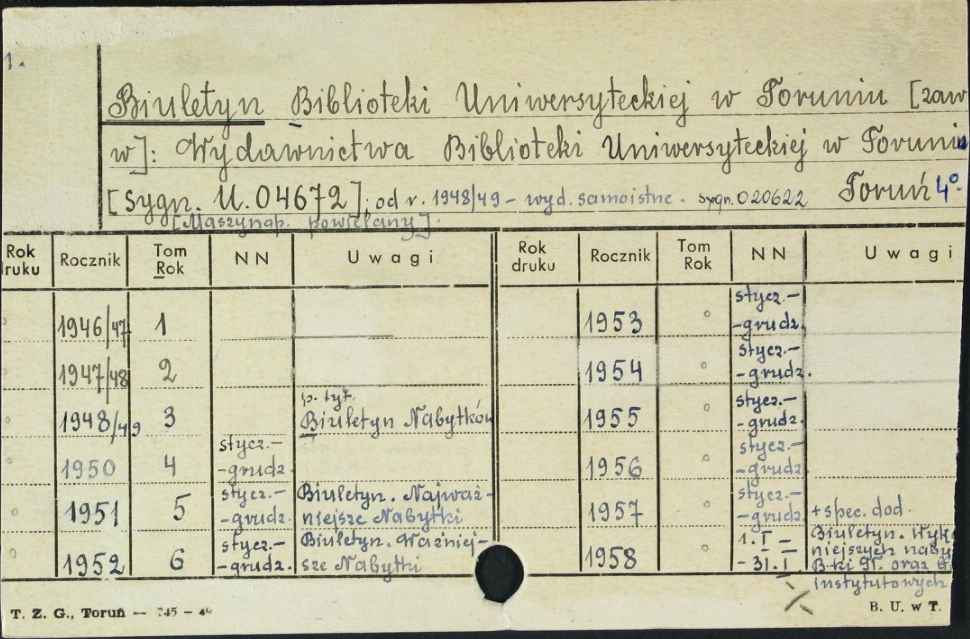 1.
Biuletyn Biblioteki Uniwersyteckiej w Toruniu [zaw
w]: Wydawnictwa Biblioteki Uniwersyteckiej w Toruniu
[Sygn. U.04672]; od r. 1948/49 - wyd. samoistne. sygn. 020622 Toruń 4°
[Maszynop. powielany].
Rok druku Rocznik Tom Rok NN Uwagi Rok druku Rocznik Tom Rok NN Uwagi
1946/47 1 1953 ° stycz.- -grudz.
1947/48 2 1954 ° stycz.- -grudz.
1948/49 3 p. tyt. Biuletyn Nabytków 1955 ° stycz.- -grudz.
1950 4 stycz.- -grudz. 1956 ° stycz.- -grudz.
1951 5 stycz.- -grudz. Biuletyn. Najważ- niejsze Nabytki 1957 ° stycz.- -grudz. + spec. dod.
1952 6 stycz.- -grudz. Biuletyn. Ważniej- sze Nabytki 1958 ° 1.I - - 31.I Biuletyn. Wyk niejszych naby B-ki Gł. oraz instytutowych
T. Z. G., Toruń — 745 – 4 B. U. w T.